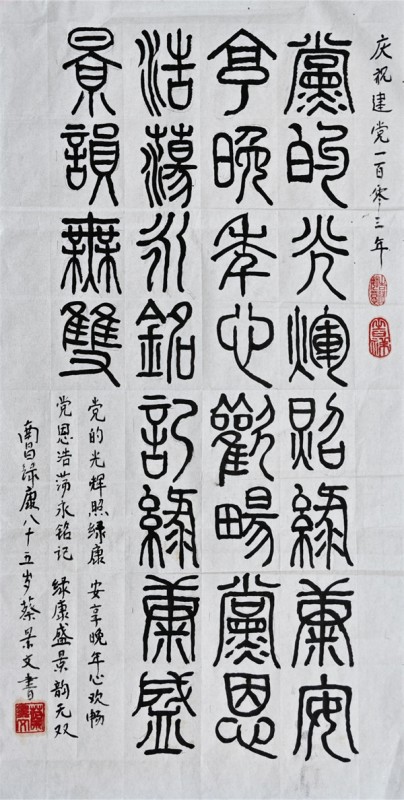 庆祝建党一百零三年
黨的光煇照綠康安
亨晚年心歡暢黨恩
浩蕩永銘記綠康盛
景韻無雙
党的光辉照绿康 安享晚年心欢畅
党恩浩荡永铭记 绿康盛景韵无双
南昌绿康八十五岁蔡景文書